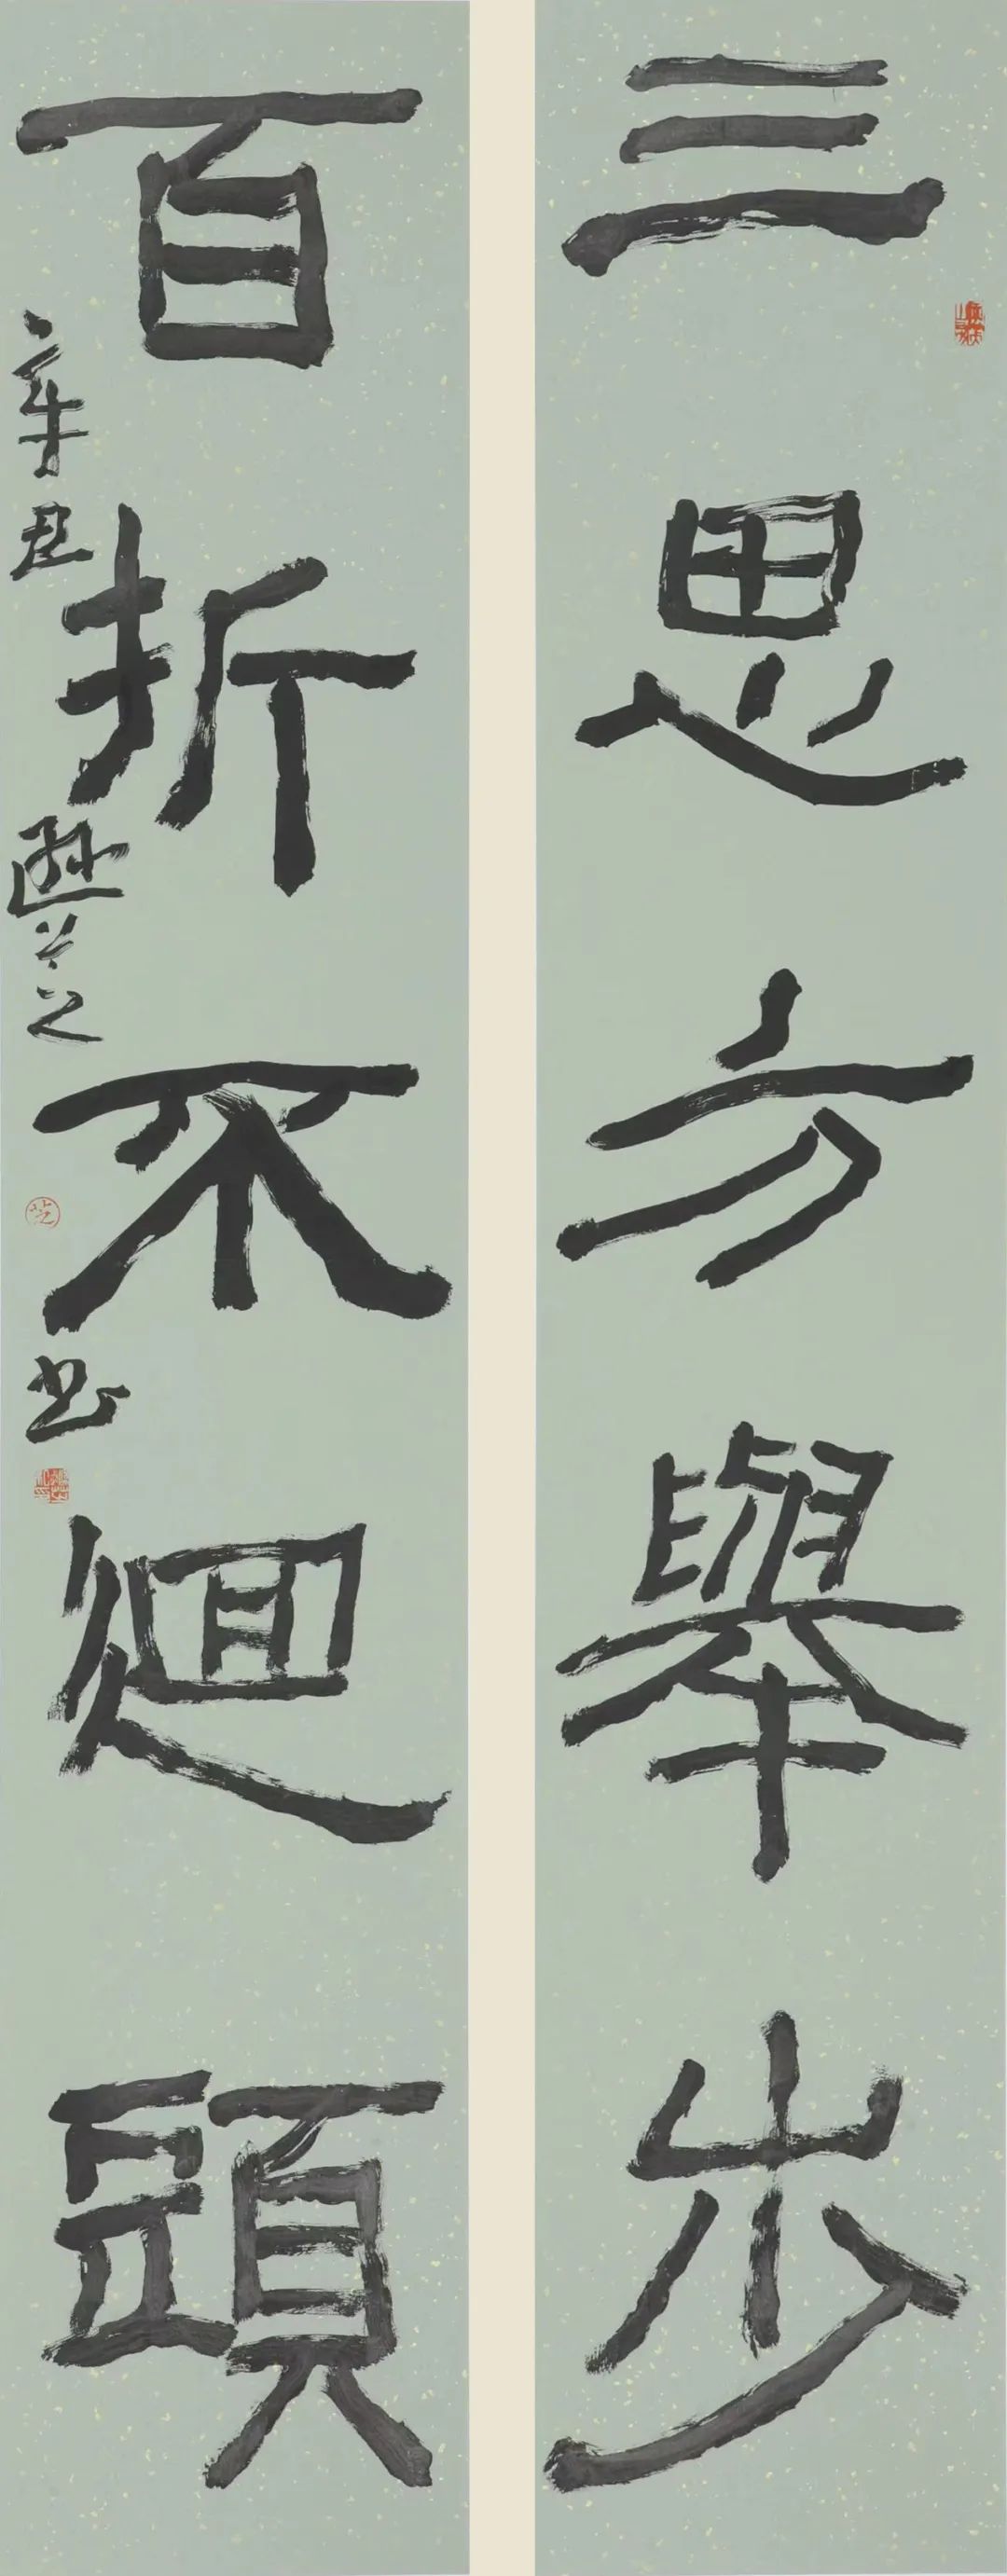 三思方舉步
百折不迴頭
辛丑 遜芝之書
芝